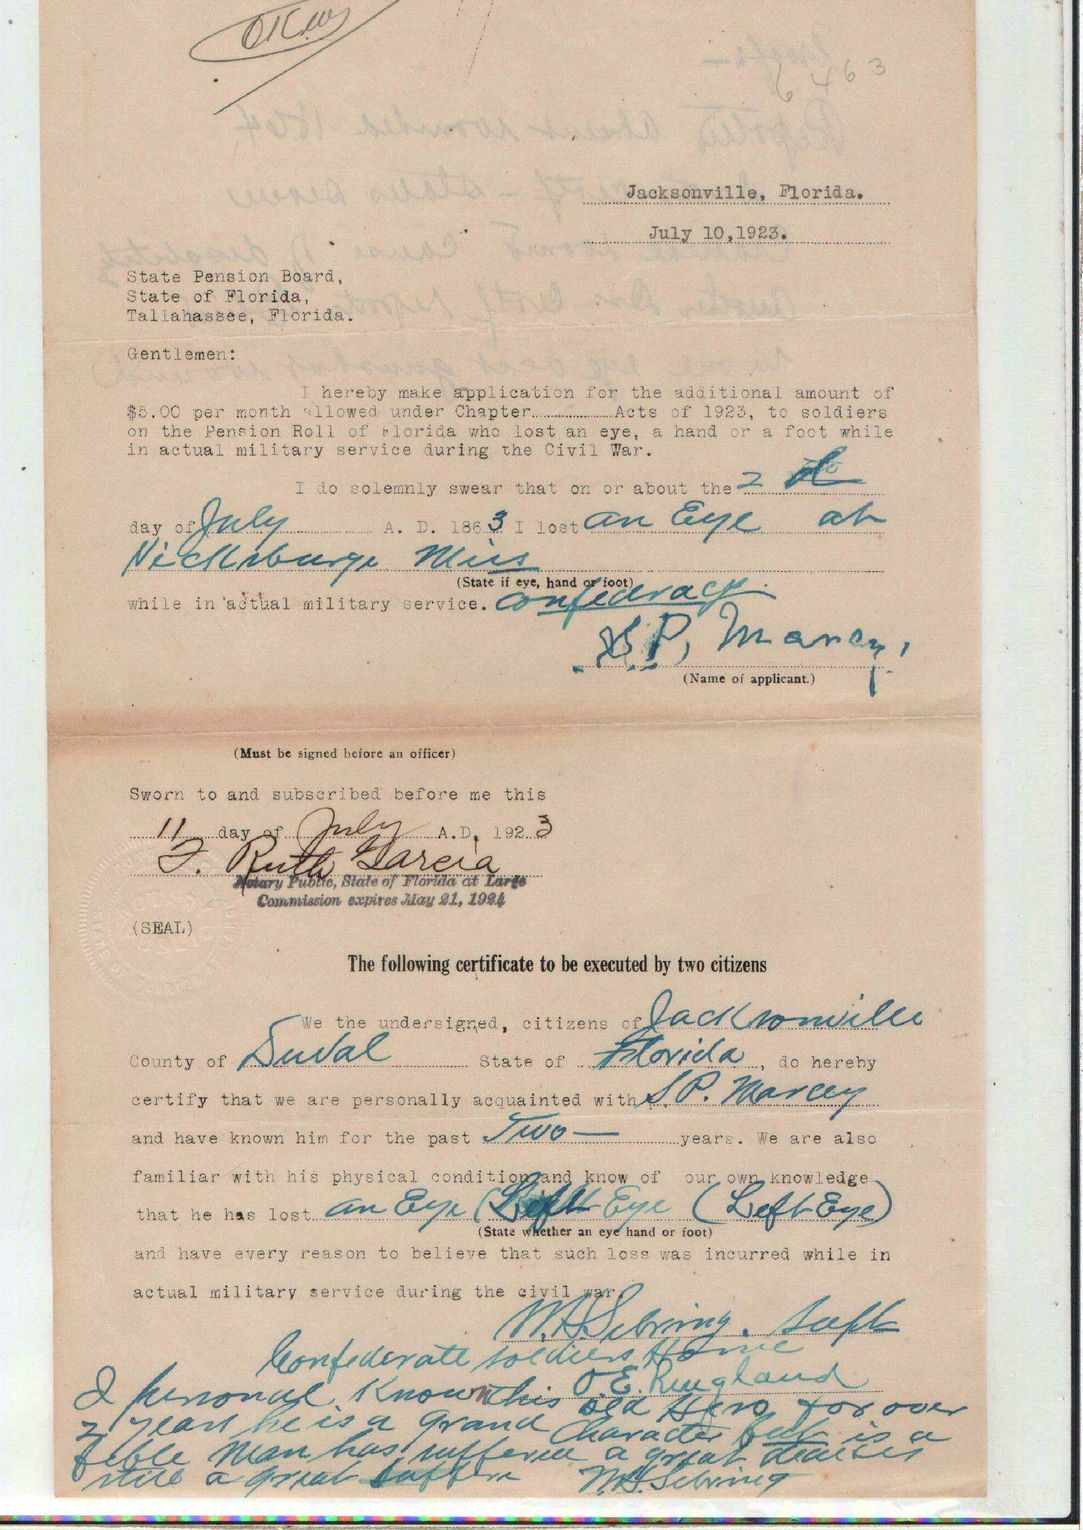 6463
Jacksonville, Florida.
July 10,1923.
State Pension Board,
State of Florida,
Tallahassee, Florida.
Gentlemen:
I hereby make application for the additional amount of
$5.00 per month allowed under Chapter Acts of 1923, to soldiers
on the Pension Roll of Florida who lost an eye, a hand or a foot while
in actual military service during the Civil War.
I do solemnly swear that on or about the 2
day of July A. D. 1863 I lost an Eye at
Vicksburge Miss
(State if eye, hand or foot)
while in actual military service. Confederacy
S P, Marcy,
(Name of applicant.)
(Must be signed before an officer)
Sworn to and subscribed before me this
11 day of July A.D. 1923
F. Ruth Garcia
Notary Public, State of Florida at Large
Commission expires May 21, 1924
(SEAL)
The following certificate to be executed by two citizens
We the undersigned, citizens of Jacksonville
County of Duval State of Florida, do hereby
certify that we are personally acquainted with S.P. Marcey
and have known him for the past Two — years. We are also
familiar with his physical condition and know of our own knowledge
that he has lost an Eye (Left Eye (Left Eye)
(State whether an eye hand or foot)
and have every reason to believe that such loss was incurred while in
actual military service during the civil war.
W.H. Sebring. Supt
Confederate soldiers Home
O.E. Ringland
I personal Known this old Hero for over
2 years he is a grand Character but is a
feble man has suffered a great
a great W.H. Sebring